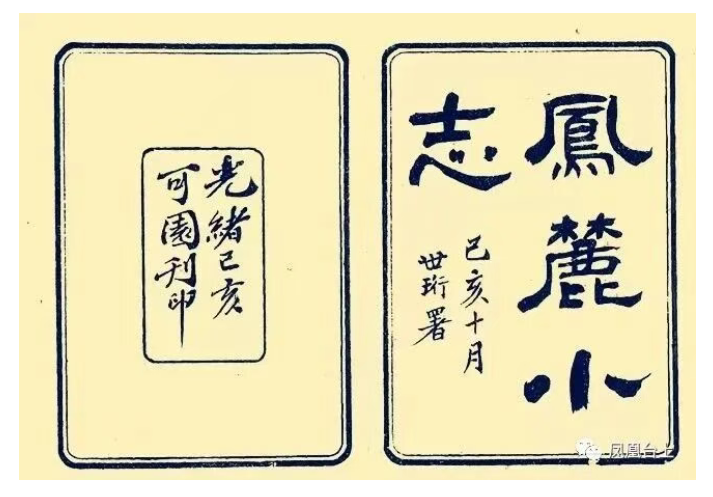 鳳麓小
志
己亥十月
世珩署
光緒己亥
可園刊印
凤凰台上